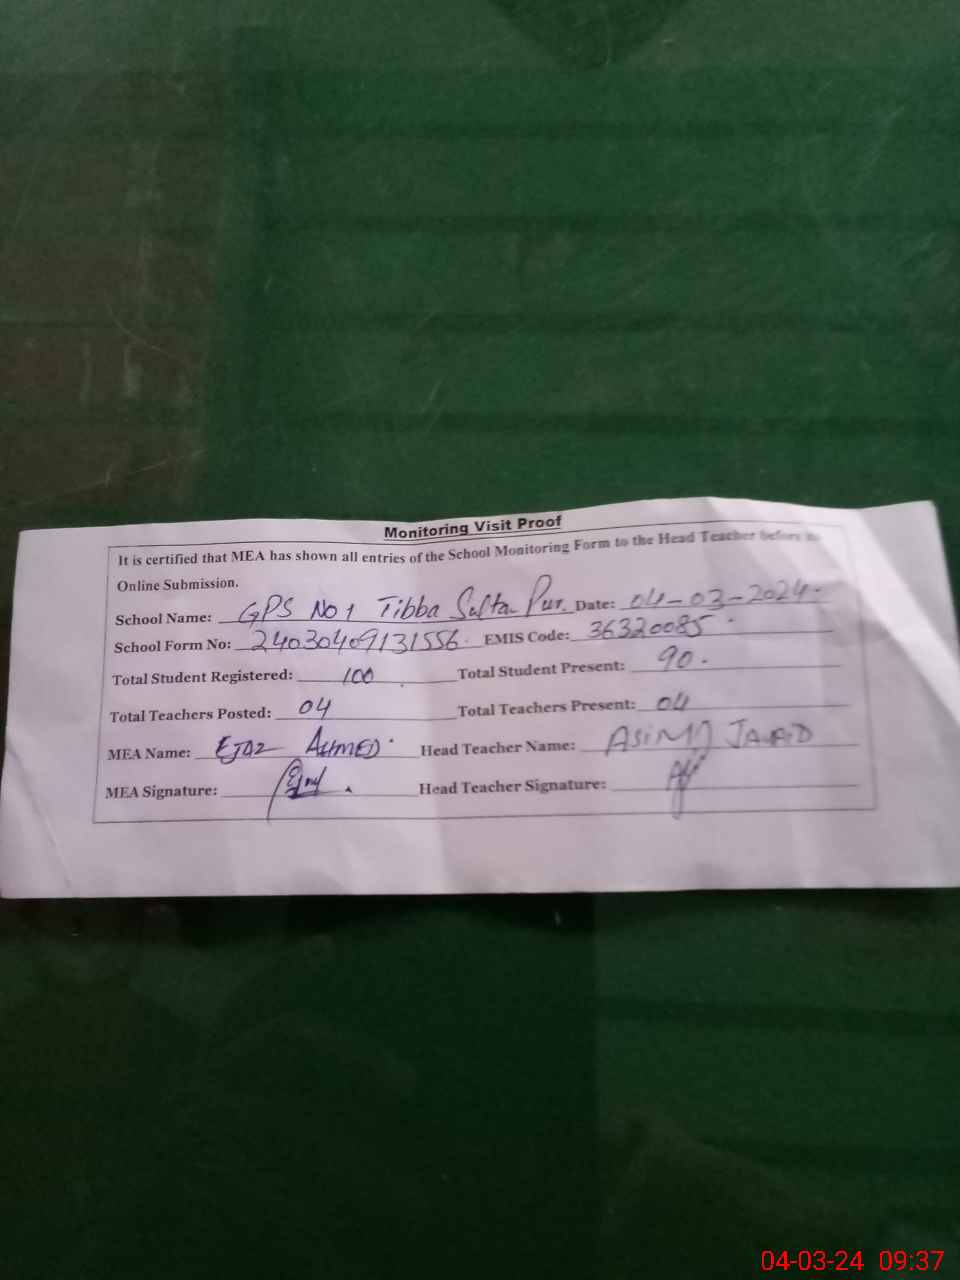 Monitoring Visit Proof
It is certified that MEA has shown all entries of the School Monitoring Form to the Head Teacher before its
Online Submission.
School Name: GPS No 1 Tibba Sultan Pur. Date: 04-03-2024.
School Form No: 24030409131556. EMIS Code: 36320085.
Total Student Registered: 100. Total Student Present: 90.
Total Teachers Posted: 04 Total Teachers Present: 04
MEA Name: EJAZ AHMED. Head Teacher Name: ASiM JAVAiD
MEA Signature: Head Teacher Signature:
04-03-24 09:37